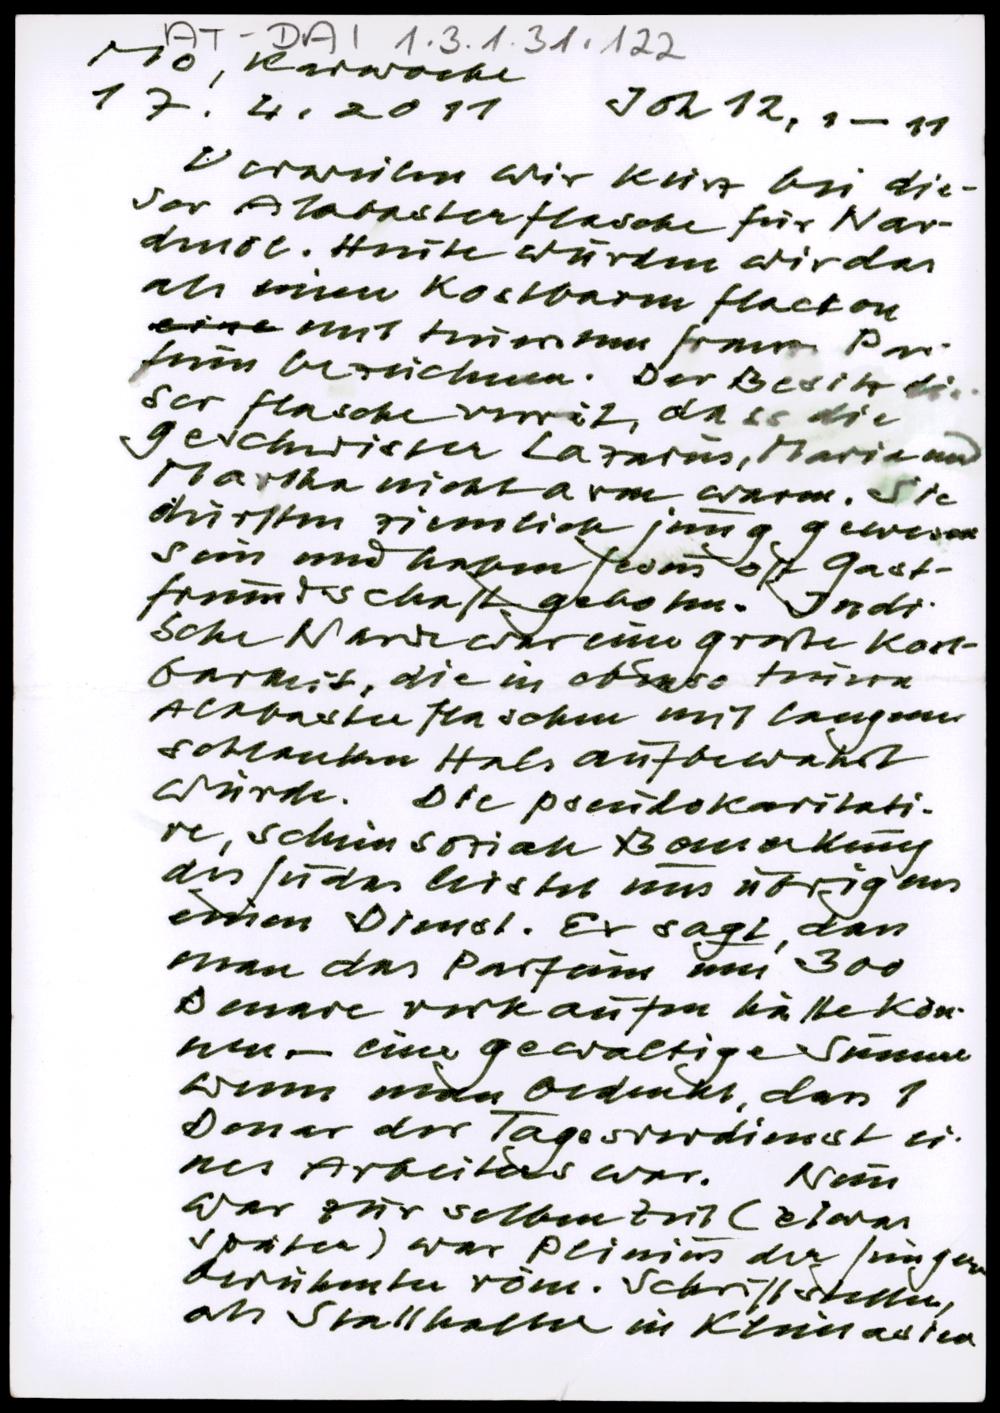 AT-DAI 1.3.1.31.122
Mo, Karwoche
17. 4. 2011 Joh 12, 1-11
Verweilen wir kurz bei die-
ser Alabasterflasche für Nar-
denöl. Heute würden wir das
als einen kostbaren Flacon
eine mit teurem franz. Par-
fum bezeichnen. Der Besitz die-
ser Flasche verrät, dass die
Geschwister Lazarus, Maria und
Martha nicht arm waren. Sie
dürften ziemlich jung gewesen
sein und haben Jesus oft Gast-
freundschaft geboten. Indi-
sche Narde war eine große Kost-
barkeit, die in ebenso teuren
Alabasterflaschen mit langem
schlanken Hals aufbewahrt
wurde. Die pseudokaritati-
ve, scheinsoziale Bemerkung
des Judas leistet uns übrigens
einen Dienst. Er sagt, dass
man das Parfum um 300
Denare verkaufen hätte kön-
nen – eine gewaltige Summe
wenn man bedenkt, dass 1
Denar der Tagesverdienst ei-
nes Arbeiters war. Nun
war zur selben Zeit (etwas
später) war Plinius der Jüngere
berühmter röm. Schriftsteller,
als Statthalter in Kleinasien